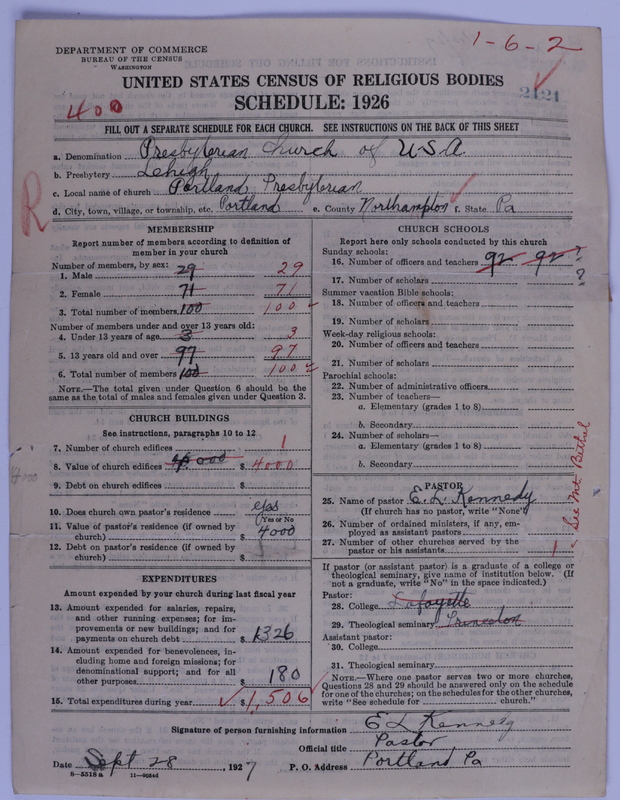 1-6-2
DEPARTMENT OF COMMERCE
BUREAU OF THE CENSUS
WASHINGTON
UNITED STATES CENSUS OF RELIGIOUS BODIES
SCHEDULE: 1926
400
2121
FILL OUT A SEPARATE SCHEDULE FOR EACH CHURCH. SEE INSTRUCTIONS ON THE BACK OF THIS SHEET
a. Denomination Presbyterian Church of U.S.A.
b. Presbytery Lehigh
c. Local name of church Portland Presbyterian
d. City, town, village, or township, etc. Portland e. County Northampton f. State Pa
R
MEMBERSHIP
Report number of members according to definition of member in your church
Number of members, by sex:
1. Male 29 29
2. Female 71 71
3. Total number of members 100 100
Number of members under and over 13 years old:
4. Under 13 years of age 3 3
5. 13 years old and over 97 97
6. Total number of members 100 100
NOTE.—The total given under Question 6 should be the same as the total of males and females given under Question 3.
CHURCH BUILDINGS
See instructions, paragraphs 10 to 12
7. Number of church edifices 1
8. Value of church edifices 4000 $ 4000
9. Debt on church edifices $
10. Does church own pastor's residence yes
(Yes or No)
11. Value of pastor's residence (if owned by church) $ 4000
12. Debt on pastor's residence (if owned by church) $
EXPENDITURES
Amount expended by your church during last fiscal year
13. Amount expended for salaries, repairs, and other running expenses; for improvements or new buildings; and for payments on church debt $ 1326
14. Amount expended for benevolences, including home and foreign missions; for denominational support; and for all other purposes $ 180
15. Total expenditures during year $ 1,506
CHURCH SCHOOLS
Report here only schools conducted by this church
Sunday schools:
16. Number of officers and teachers 92 92 ?
17. Number of scholars ?
Summer vacation Bible schools:
18. Number of officers and teachers
19. Number of scholars
Week-day religious schools:
20. Number of officers and teachers
21. Number of scholars
Parochial schools:
22. Number of administrative officers
23. Number of teachers—
a. Elementary (grades 1 to 8)
b. Secondary
24. Number of scholars—
a. Elementary (grades 1 to 8)
b. Secondary
PASTOR
25. Name of pastor E. L. Kennedy
(If church has no pastor, write "None")
26. Number of ordained ministers, if any, employed as assistant pastors
27. Number of other churches served by the pastor or his assistants 1
See Mt Bethel
If pastor (or assistant pastor) is a graduate of a college or theological seminary, give name of institution below. (If not a graduate, write "No" in the space indicated.)
Pastor:
28. College Lafayette
29. Theological seminary Princeton
Assistant pastor:
30. College
31. Theological seminary
NOTE.—Where one pastor serves two or more churches, Questions 28 and 29 should be answered only on the schedule for one of the churches; on the schedules for the other churches, write "See schedule for church."
Signature of person furnishing information E L Kennedy
Official title Pastor
Date Sept 28, 1927 P. O. Address Portland Pa
8-5518a